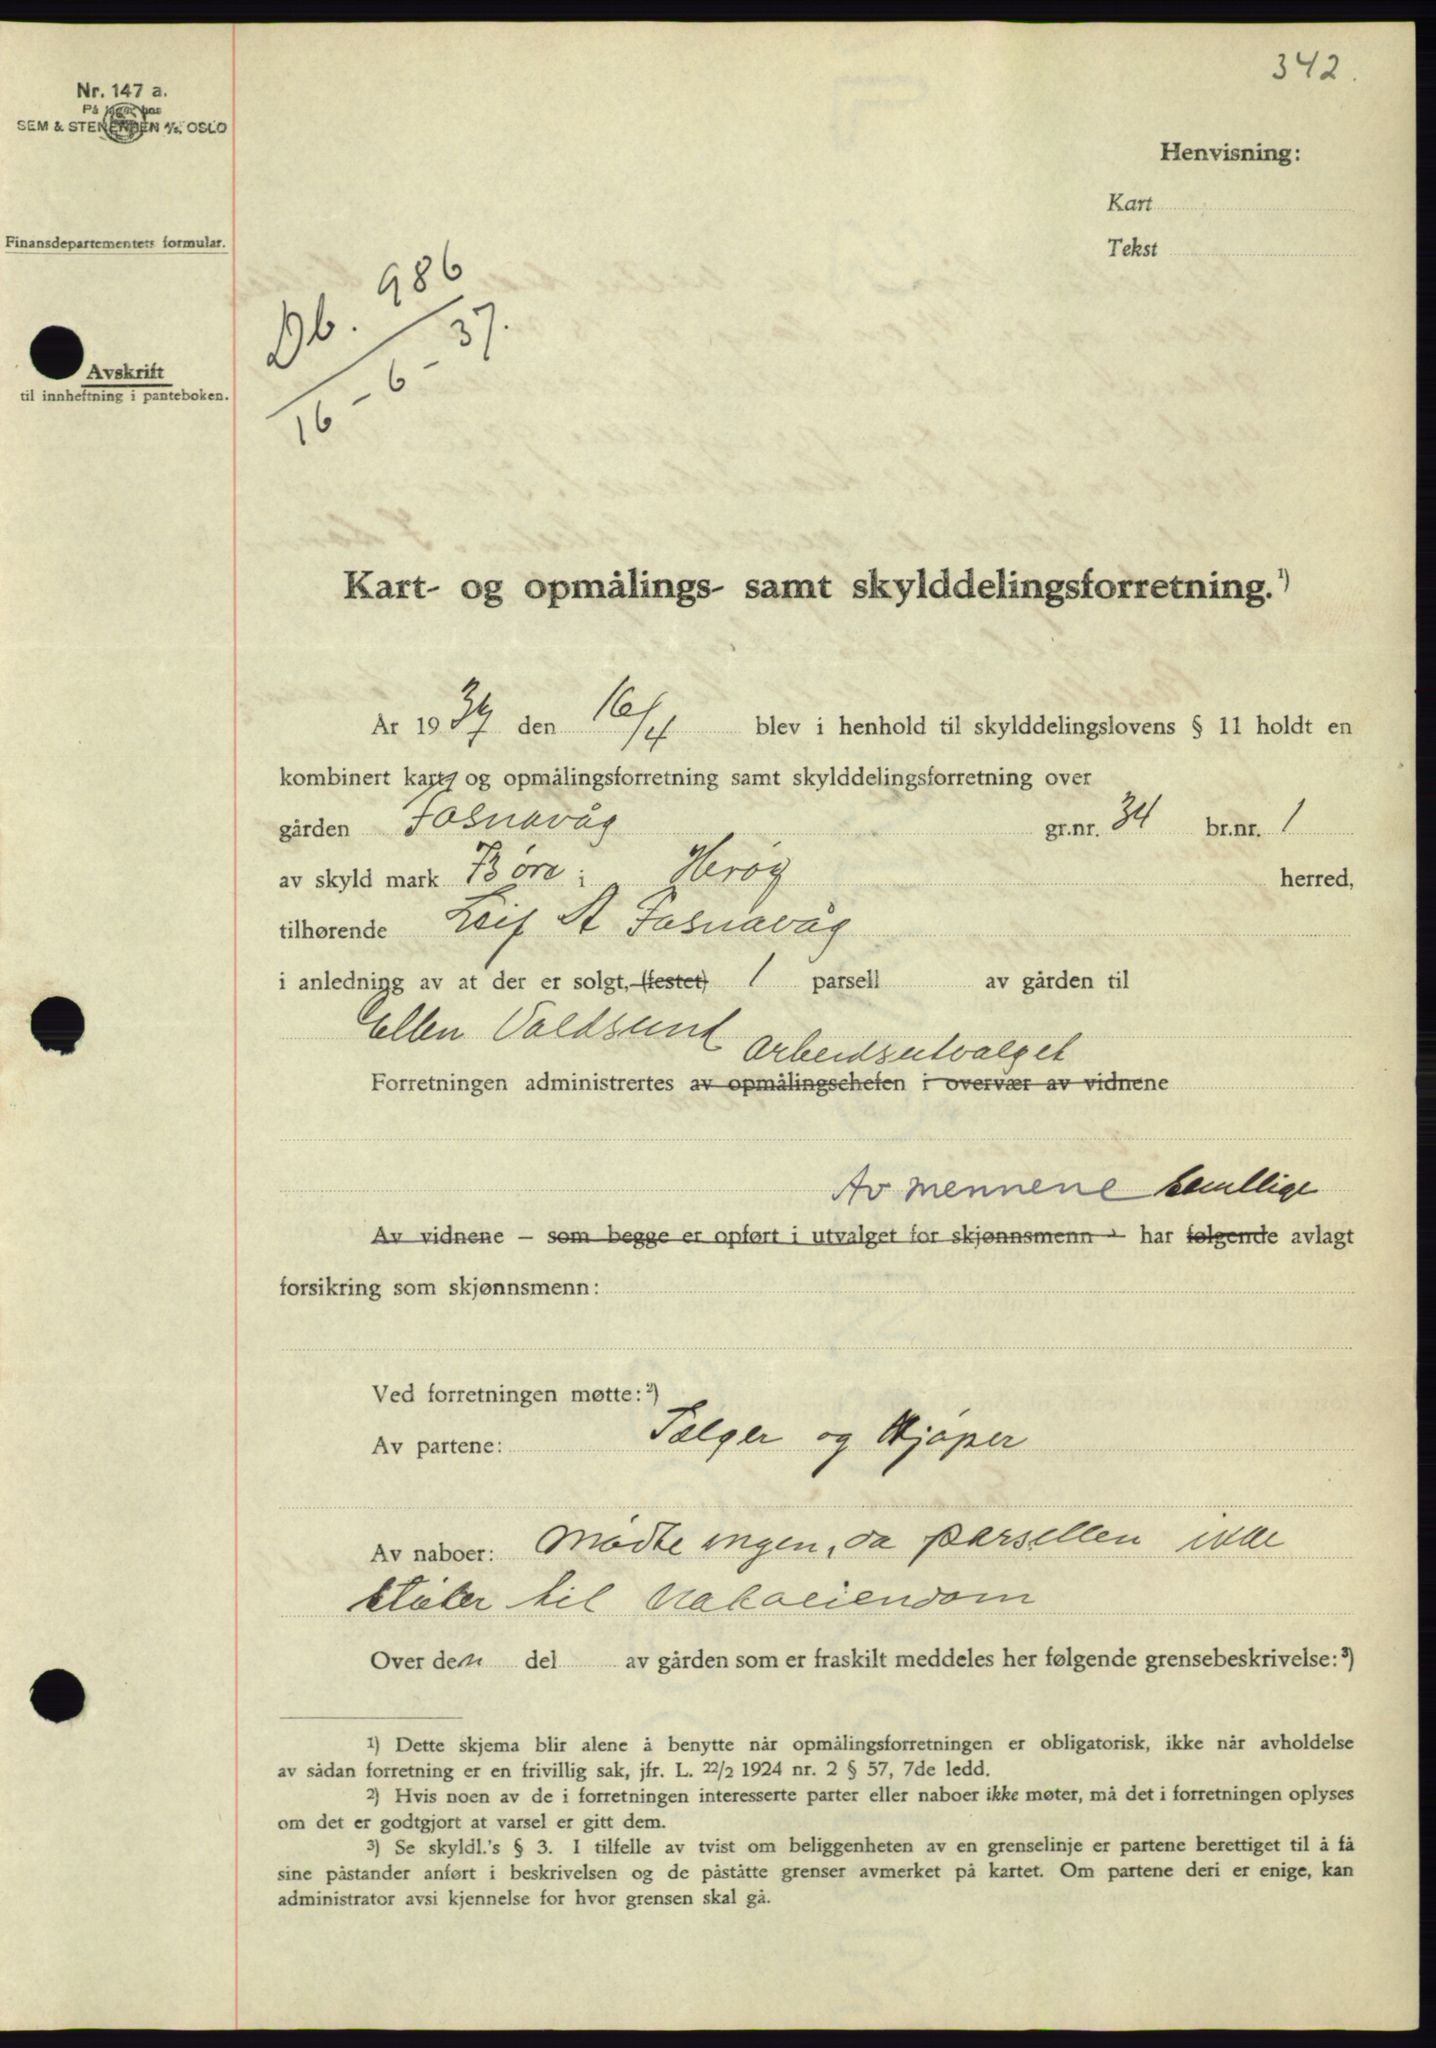 342.
Nr. 147 a.
På lager hos
SEM & STENERSEN A/S, OSLO
Henvisning:
Kart
Tekst
Finansdepartementets formular.
Db. 986
16 - 6 - 37.
Avskrift
til innheftning i panteboken.
Kart- og opmålings- samt skylddelingsforretning.¹)
År 1937 den 16/4 blev i henhold til skylddelingslovens § 11 holdt en
kombinert kart- og opmålingsforretning samt skylddelingsforretning over
gården Fosnavåg gr.nr. 34 br.nr. 1
av skyld mark Børe i Herøy herred,
tilhørende Leif A Fosnavåg
i anledning av at der er solgt, (festet) 1 parsell av gården til
Ellen Voldsund
Arbeidsutvalget
Forretningen administrertes av opmålingschefen i overvær av vidnene
Av mennene samtlige
Av vidnene – som begge er opført i utvalget for skjønnsmenn – har følgende avlagt
forsikring som skjønnsmenn:
Ved forretningen møtte:²)
Av partene: Sælger og Kjøper
Av naboer: Mødte ingen, da parsellen ikke
støter til Naboeiendom
Over den del av gården som er fraskilt meddeles her følgende grensebeskrivelse:³)
¹) Dette skjema blir alene å benytte når opmålingsforretningen er obligatorisk, ikke når avholdelse
av sådan forretning er en frivillig sak, jfr. L. 22/2 1924 nr. 2 § 57, 7de ledd.
²) Hvis noen av de i forretningen interesserte parter eller naboer ikke møter, må det i forretningen oplyses
om det er godtgjort at varsel er gitt dem.
³) Se skyldl.'s § 3. I tilfelle av tvist om beliggenheten av en grenselinje er partene berettiget til å få
sine påstander anført i beskrivelsen og de påståtte grenser avmerket på kartet. Om partene deri er enige, kan
administrator avsi kjennelse for hvor grensen skal gå.